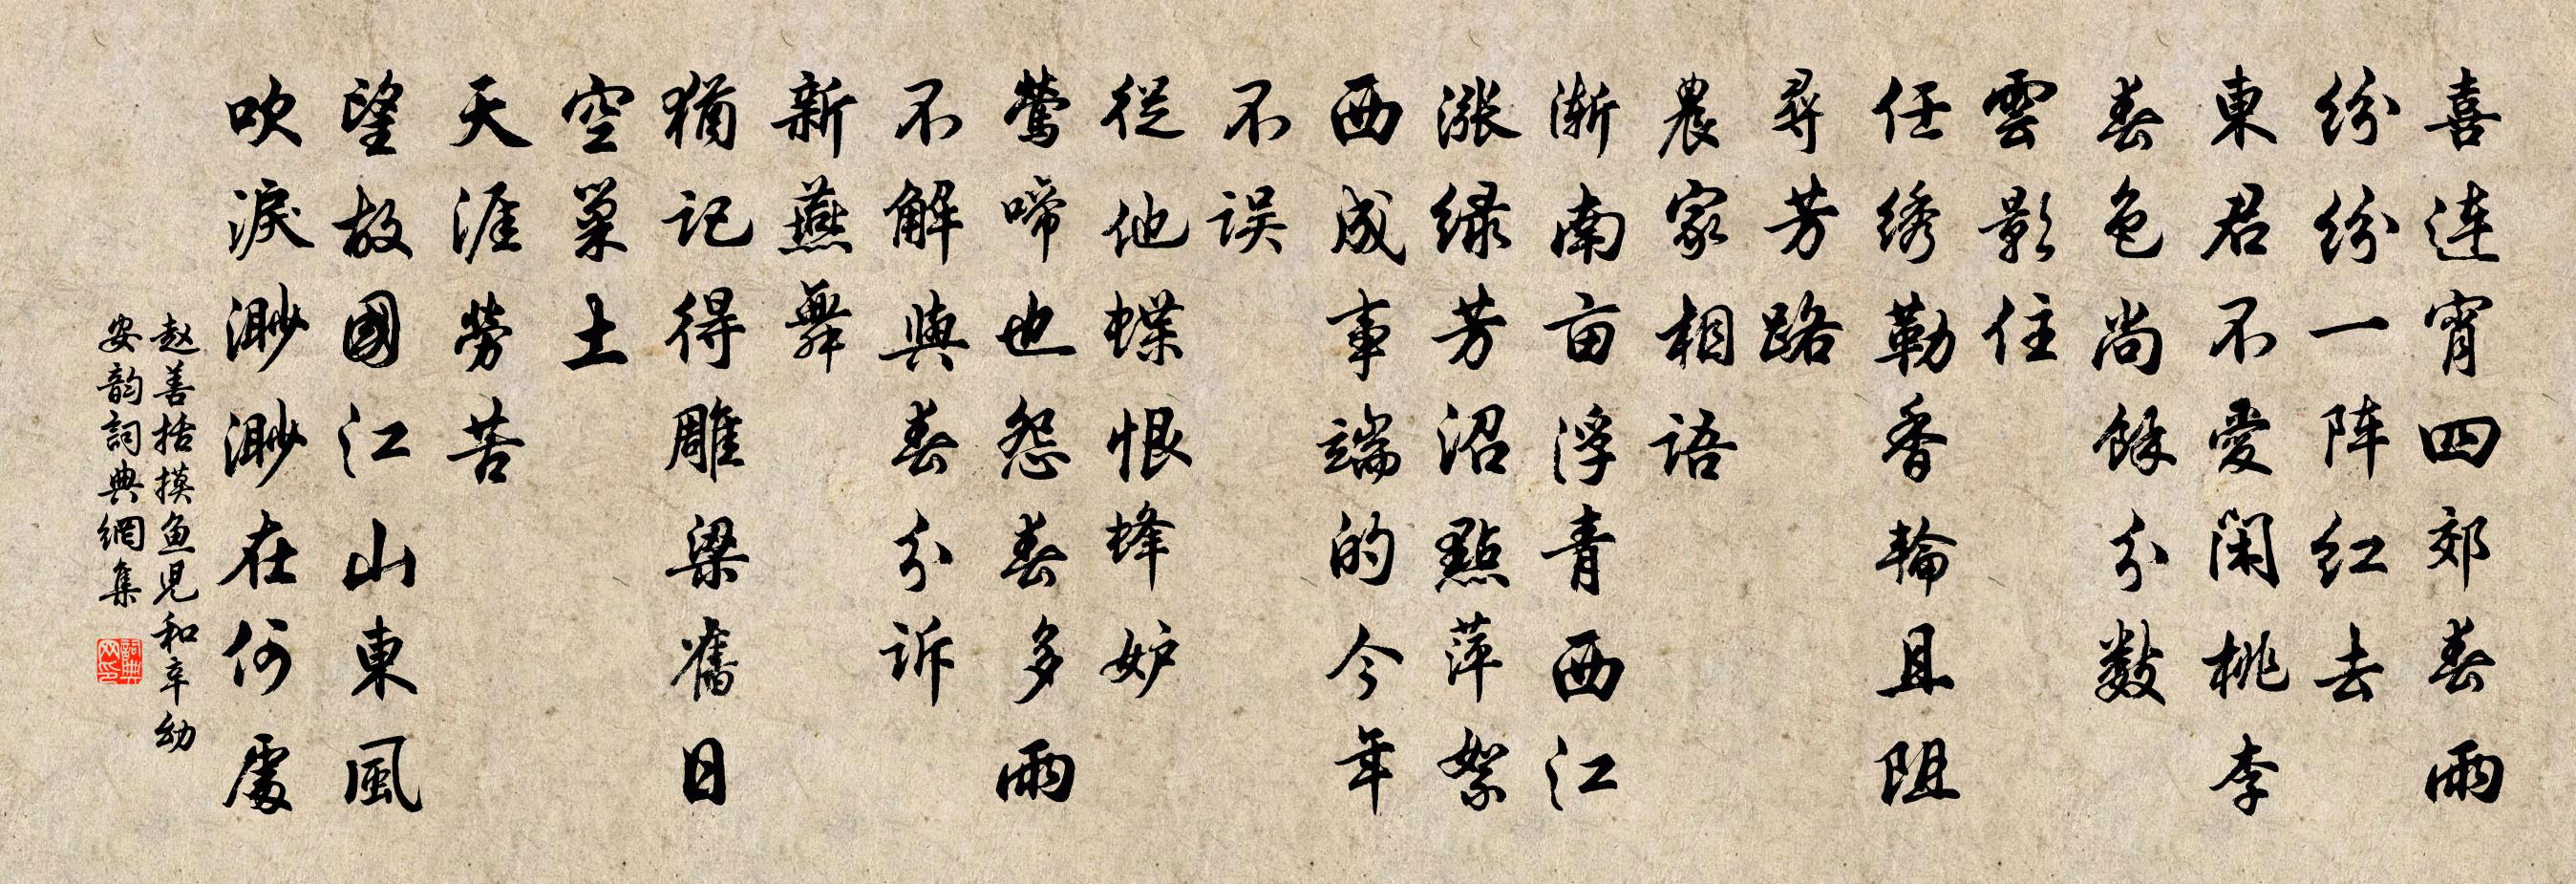 喜連宵四郊春雨
紛紛一阵红去
東君不愛閑桃李
春色尚餘分數
雲影住
任绣勒香輪且阻
尋芳路
農家相語
渐南亩浮青西江
漲绿芳沼點萍絮
西成事端的今年
不误
從他蝶恨蜂妒
鶯啼也怨春多雨
不解與春分诉
新燕舞
猶记得雕梁舊日
空巢土
天涯勞苦
望故國江山東風
吹淚渺渺在何處
赵善括摸鱼児和辛幼
安韵詞典網集
詞典网印